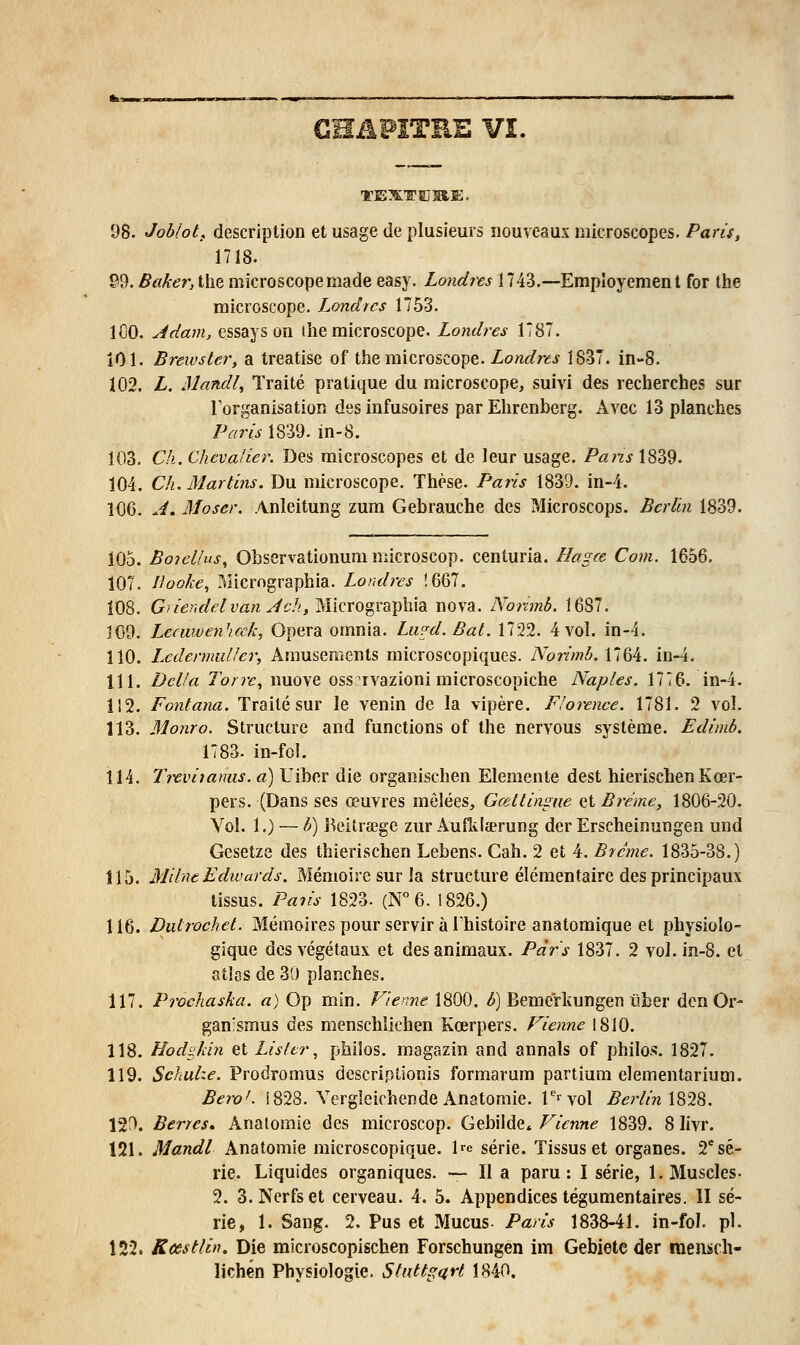 CHAPITRE VI.
TEXTURE.
98. Joblot, description et usage de plusieurs nouveaux microscopes. Paris,
1718.
99. Baker, the microscope made easy. Londres 1743.—Employement for the
microscope. Londres 1753.
100. Adam, essays on the microscope. Londres 1787.
101. Brewster, a treatise of the microscope. Londres 1837. in-8.
102. L. Mandl, Traité pratique du microscope, suivi des recherches sur
l'organisation des infusoires par Ehrenberg. Avec 13 planches
Paris 1839. in-8.
103. Ch. Chevalier. Des microscopes et de leur usage. Paris 1839.
104. Ch. Martins. Du microscope. Thèse. Paris 1839. in-4.
106. A. Moser. Anleitung zum Gebrauche des Microscops. Berlin 1839.
105. Borellus, Observationum microscop. centuria. Hagæ Com. 1656.
107. Hooke, Micrographia. Londres 1667.
108. Griendel van Ach, Micrographia nova. Norimb. 1687.
109. Leeuwenhœk, Opera omnia. Lugd. Bat. 1722. 4 vol. in-4.
110. Ledermuller, Amusements microscopiques. Norimb. 1764. in-4.
111. Della Torre, nuove osservazioni microscopiche Naples. 1776. in-4.
112. Fontana. Traité sur le venin de la vipère. Florence. 1781. 2 vol.
113. Monro. Structure and functions of the nervous système. Edimb.
1783. in-fol.
114. Treviranus. a) Uiber die organischen Elemente dest hierischen Kœr-
pers. (Dans ses œuvres mêlées, Gœttingue et Brême, 1806-20.
Vol. 1.) — b) Beitræge zur Aufklærung der Erscheinungen und
Gesetze des thierischen Lebens. Cah. 2 et 4. Brême. 1835-38.)
115. Milne Edwards. Mémoire sur la structure élémentaire des principaux
tissus. Paris 1823. (N° 6. 1826.)
116. Dutrochet. Mémoires pour servir à l'histoire anatomique et physiolo-
gique des végétaux et des animaux. Paris 1837. 2 vol. in-8. et
atlas de 30 planches.
117. Prochaska. a) Op min. Vienne 1800. b) Bemerkungen über den Or-
ganismus des menschlichen Kœrpers. Vienne 1810.
118. Hodgkin et Lister, philos. magazin and annals of philos. 1827.
119. Schulze. Prodromus descriptionis formarum partium elementarium.
Berol. 1828. Vergleichende Anatomie. 1er vol Berlin 1828.
120. Berres. Anatomie des microscop. Gebilde. Vienne 1839. 8 livr.
121. Mandl Anatomie microscopique. 1re série. Tissus et organes. 2e sé-
rie. Liquides organiques. — Il a paru : I série, 1. Muscles.
2. 3. Nerfs et cerveau. 4. 5. Appendices tégumentaires. II sé-
rie, 1. Sang. 2. Pus et Mucus. Paris 1838-41. in-fol. pl.
122. Kœstlin. Die microscopischen Forschungen im Gebiete der mensch-
lichen Physiologie. Stuttgart 1840.